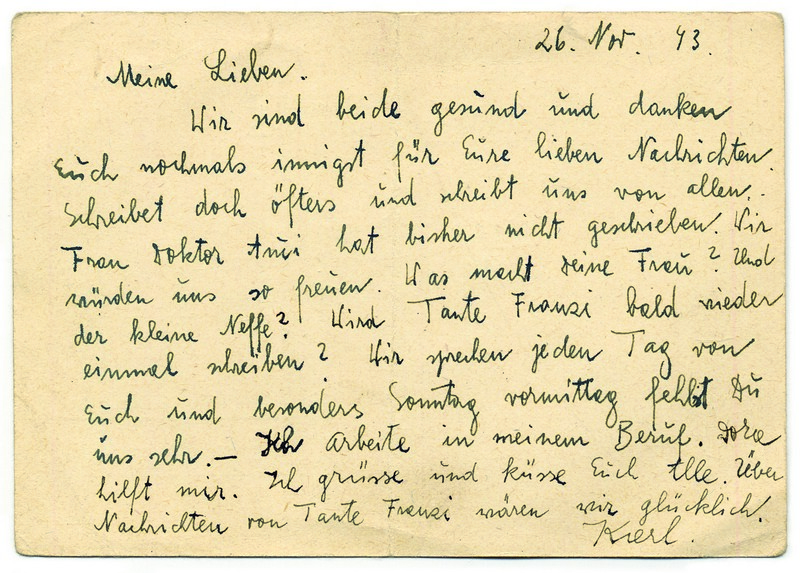 26. Nov. 43.
Meine Lieben.
Wir sind beide gesund und danken
Euch nochmals innigst für Eure lieben Nachrichten.
Schreibet doch öfters und schreibt uns von allen.
Frau Doktor hat bisher nicht geschrieben. Wir
würden uns so freuen. Was macht Deine Frau? Und
der kleine Neffe? Wird Tante Franzi bald wieder
einmal schreiben? Wir sprechen jeden Tag von
Euch und besonders Sonntag vormittag fehlst Du
uns sehr. — Ich Arbeite in meinem Beruf. Dora
hilft mir. Ich grüsse und küsse Euch Alle. Über
Nachrichten von Tante Franzi wären wir glücklich.
Karl.